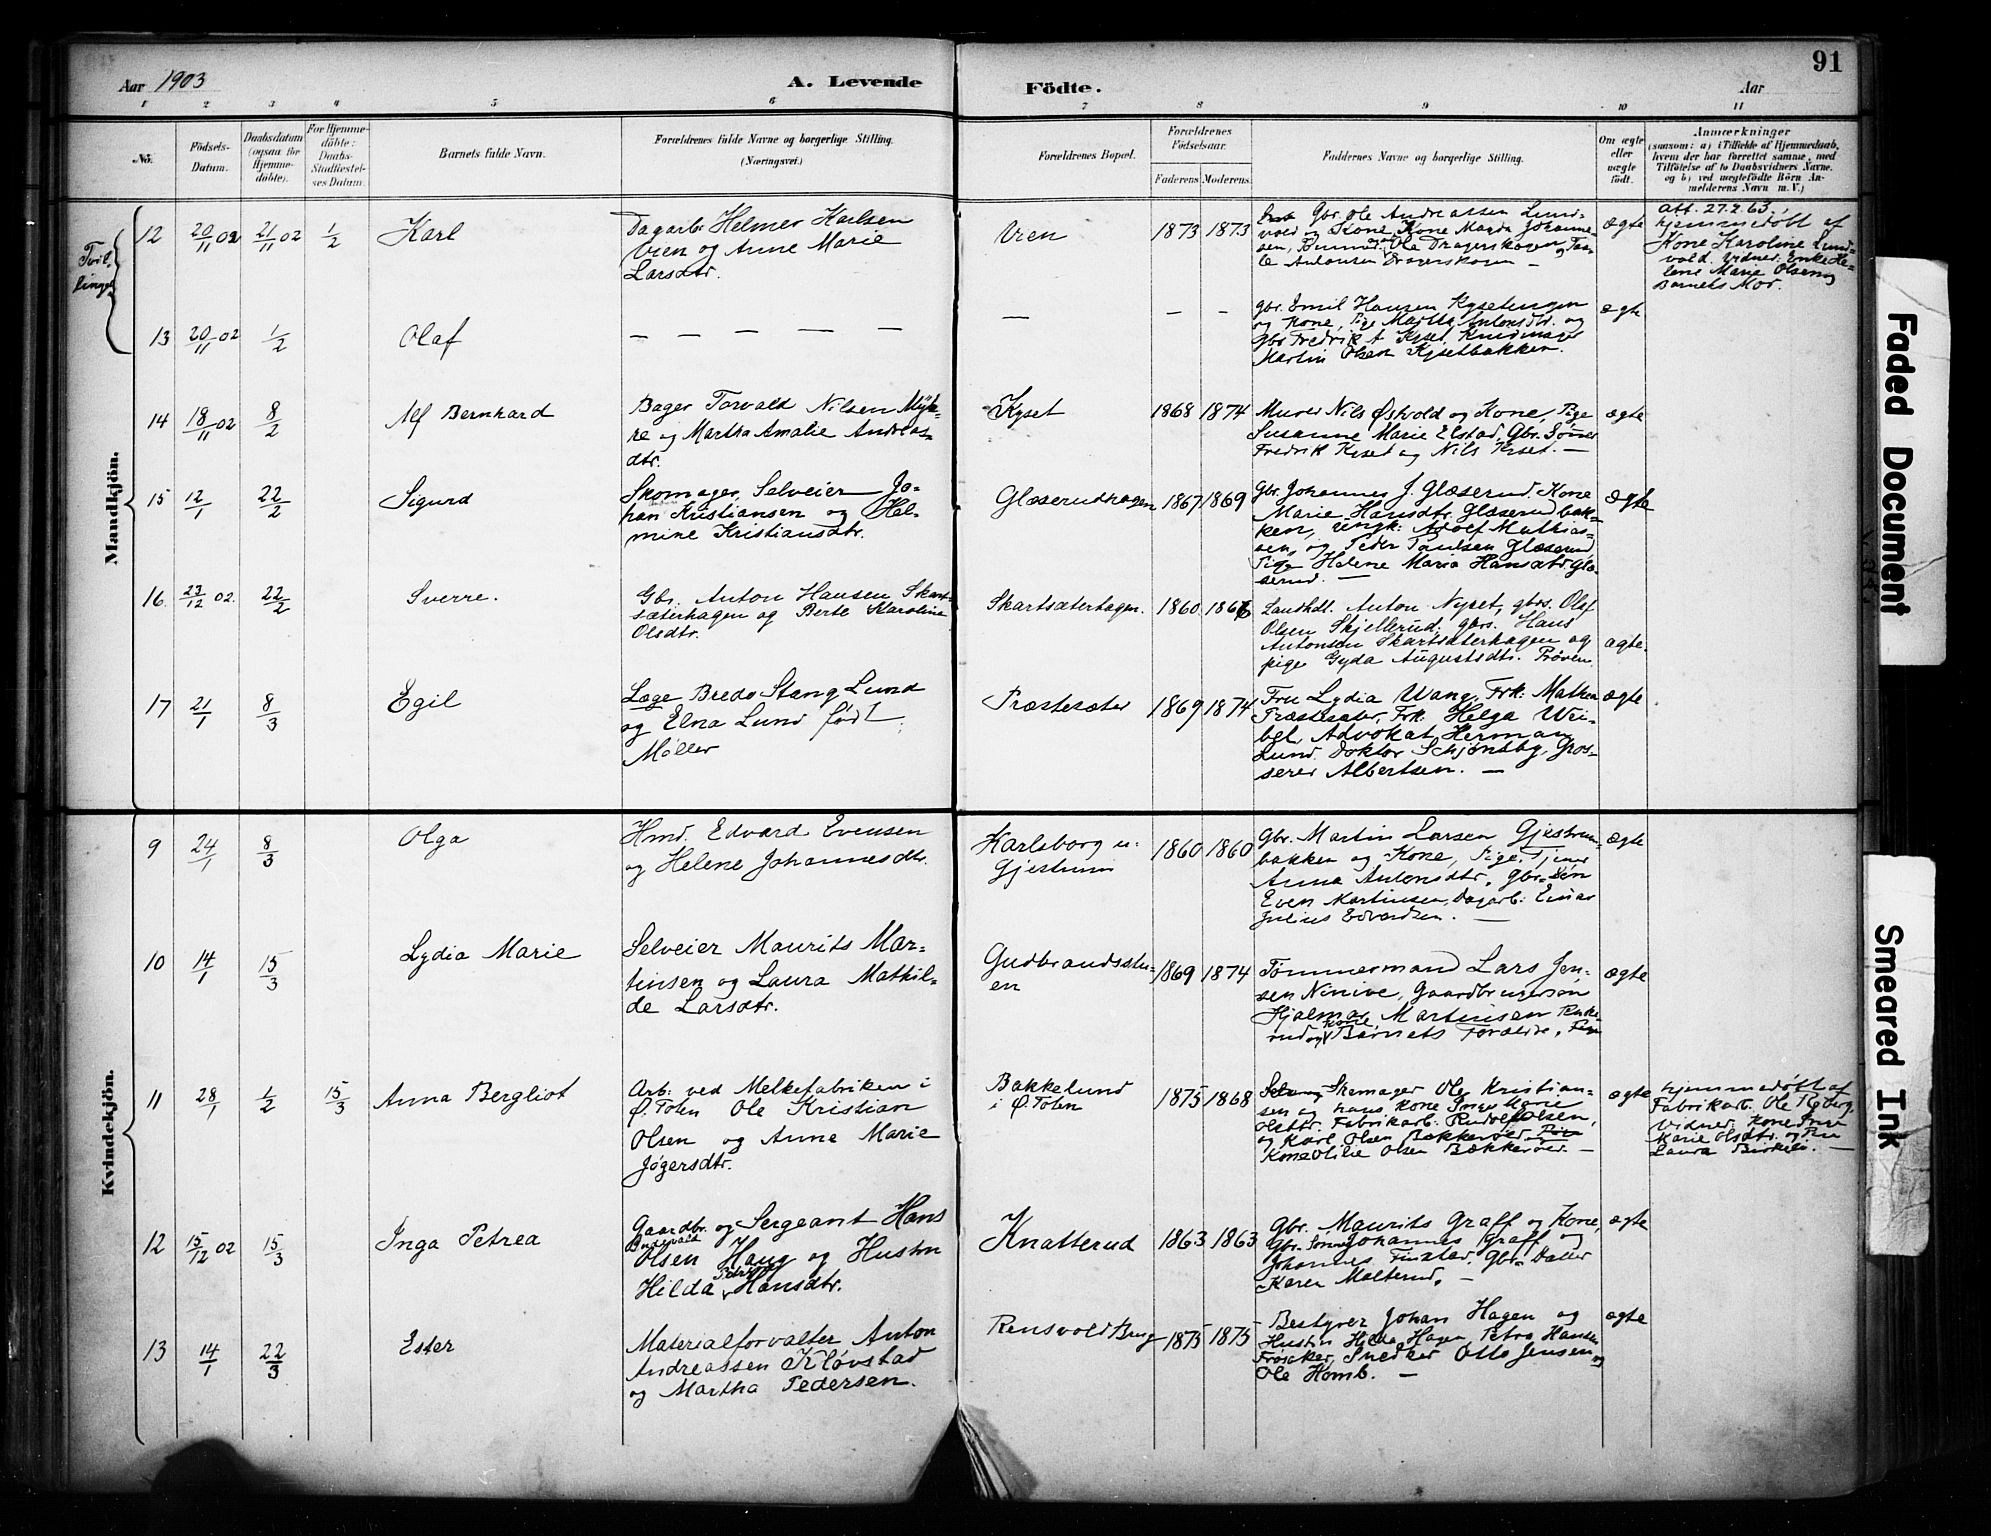 91
Aar 1903
A. Levende Födte.
Aar
1 2 3 4 5 6 7 8 9 10 11
No.
Fødsels-
Datum.
Daabsdatum
(ogsaa for
Hjemme-
döbte).
For Hjemme-
döbte:
Daabs-
Stadfæstel-
ses Datum.
Barnets fulde Navn.
Forældrenes fulde Navne og borgerlige Stilling.
(Næringsvei.)
Forældrenes Bopæl.
Forældrenes
Födselsaar.
Faderens Moderens
Faddernes Navne og borgerlige Stilling.
Om ægte
eller
uægte
födt.
Anmærkninger
(saasom: a) i Tilfælde af Hjemmedaab,
hvem der har forrettet samme, med
Tilföielse af to Daabsvidners Navne.
og b) ved uægtefödte Börn An-
melderens Navn m. V.)
Mandkjön.
Tvil-
linger
12 20/11 02 21/11 02 1/2 Karl
Dagarb. Helmer Karlsen
Vren og Anne Marie
Larsdtr.
Vren 1873 1873
Gbr. Ole Andreassen Lund-
vold og Kone, Kone Magda Johanne-
sen, Ole Dragerskogen og
Antonsen Dragerskogen —
ægte
att. 27.2.63,
hjemmedøbt af
Kone Karoline Lund-
vold. Vidner: Enke He-
lene Marie Olsen og
Barnets Mor.
13 20/11 02 1/2 Olaf — — — — —
— — —
Gbr. Emil Hansen Kysetengen
og Kone, Pige Martha Antonsdtr. og
Gbr Fredrik A Kyset
Martin Olsen Kysetbakken.
ægte
14 18/11 02 8/2 Alf Bernhard
Bager Torvald Nilsen Myh-
re og Martha Amalie Andreas-
dtr.
Kyset 1868 1874
Murer Nils Østvold og Kone, Pige
Susanne Marie Elstad, Gbr. Sönner
Fredrik Kyset og Nils Kyset. —
ægte
15 12/1 22/2 Sigurd
Skomager, Selveier Jo-
han Kristiansen og Hel-
mine Kristiansdtr.
Glæserudhagen 1867 1869
Gbr. Johannes J. Glæserud, Kone
Marie Hansdtr. Glæserudbak-
ken, Ungk: Adolf Mathias-
sen, og Peder Paulsen Glæserud,
Pige Helene Maria Hansdtr Glæ-
serud. —
ægte
16. 23/12 02. 22/2 Sverre.
Gbr. Anton Hansen Skart-
sæterhagen og Berte Karoline
Olsdtr.
Skartsæterhagen. 1860. 1866
Landhdl. Anton Nyset, gbrs. Olaf
Olsen Skjellerud; gbrs. Hans
Antonsen Skartsæterhagen og
pige Gyda Augustsdtr. Prøven
ægte.
17 21/1 8/3 Egil
Læge Bredo Stang Lund
og Elna Lund født
Møller
Præstesæter 1869 1874
Fru Lydia Wang, Frk:
Præstesæter, Frk. Helga Wei-
bel, Advokat Herman
Lund, Doktor Schjønsby, Gros-
serer Albertsen. —
ægte
Kvindekjön.
9 24/1 8/3 Olga
Hmd. Edvard Evensen
og Helene Johannesdtr.
Karlsborg u.
Gjestrum
1860 1860
Gbr. Martin Larsen Gjestrum-
bakken og Kone, Pige, Tjener
Anna Antonsdtr, Gbr-søn
Even Martinsen, Dagarb: Einar
Julius Edvardsen. —
ægte
10 14/1 15/3 Lydia Marie
Selveier Maurits Mar-
tinsen og Laura Mathil-
de Larsdtr.
Gudbrandsstu-
en
1869 1874
Tømmermand Lars Jen-
sen Ninive, Gaardbrugersøn
Hjalmar Martinsen
rud og Kone Barnets Forældre,
ægte
11 28/1 1/2 15/3 Anna Bergliot
Arb: ved Melkefabriken i
Ø. Toten Ole Kristian
Olsen og Anne Marie
Jøgersdtr.
Bakkelund
i Ø. Toten
1875 1868
Skomager Ole Kristian-
sen og hans kone Inger Marie
Olsdtr. Fabrikarb: Rudolf Olsen,
og Karl Olsen Bækkevold,
Kone Olilie Olsen Bækkevold. —
ægte
hjemmedøbt af
Fabrikarb. Ole Ryberg.
Vidner, Kone Inger
Marie Olsdtr. og Fru
Laura Birkeli. —
12 15/12 02 15/3 Inga Petrea
Gaardbr. og Sergeant Hans
Olsen Haug og Hustru
Hilda Petrea Hansdtr.
Knatterud 1863 1863
Gbr. Maurits Graff og Kone,
Gbr. Sønner Johannes Graff og
Johannes Finstad, Gbr-Datter
Karen Malterud. —
ægte
13 14/1 22/3 Ester
Materialforvalter Anton
Andreassen Kløvstad
og Martha Pedersen.
Rensvold Brug 1875 1875
Bestyrer Johan Hagen og
Hustru Hilda Hagen, Petra Hansen
Frøsaker, Snedker Otto Jensen og
Ole Homb. —
ægte
Faded Document
Smeared Ink